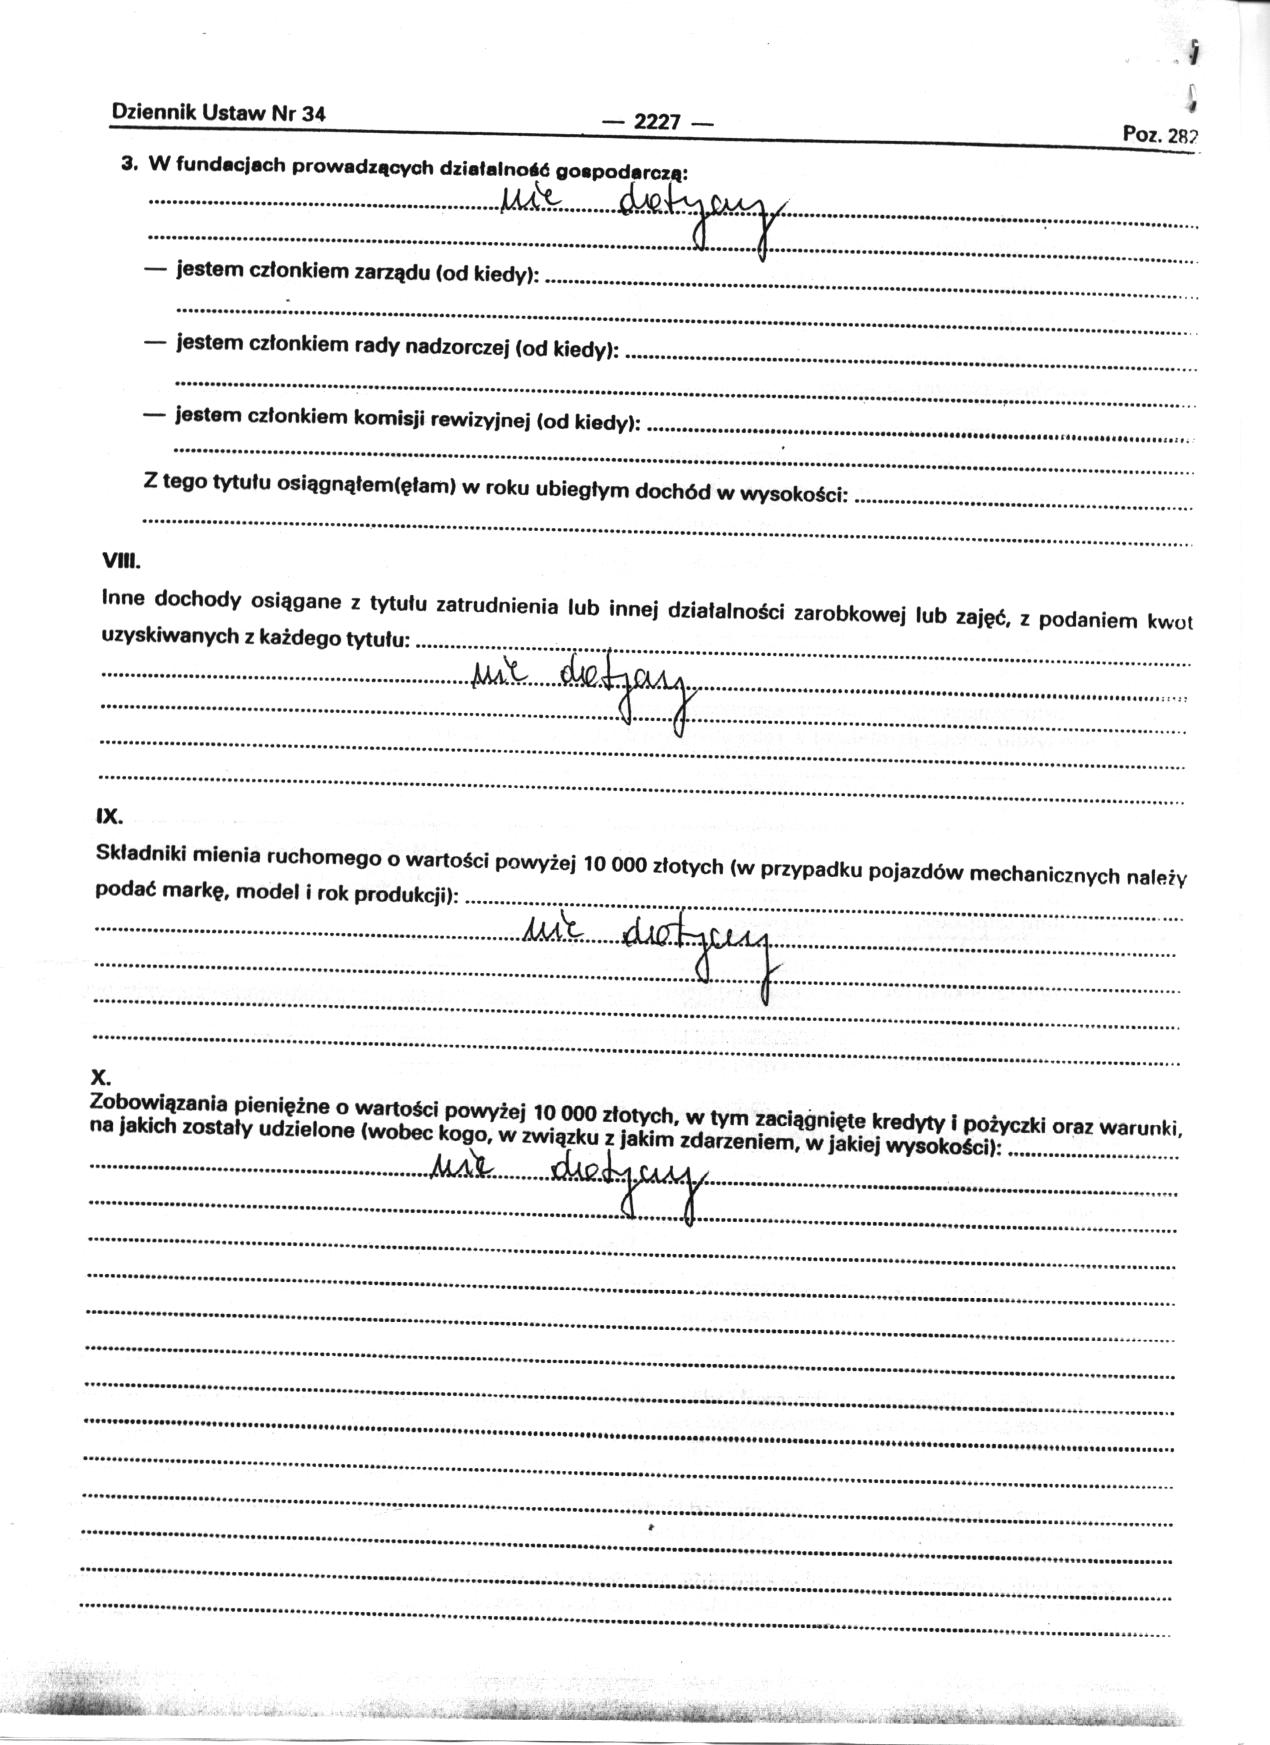 Dziennik Ustaw Nr 34 — 2227 — Poz. 282
3. W fundacjach prowadzących działalność gospodarczą:
nie dotyczy
— jestem członkiem zarządu (od kiedy):
— jestem członkiem rady nadzorczej (od kiedy):
— jestem członkiem komisji rewizyjnej (od kiedy):
Z tego tytułu osiągnąłem(ęłam) w roku ubiegłym dochód w wysokości:
VIII.
Inne dochody osiągane z tytułu zatrudnienia lub innej działalności zarobkowej lub zajęć, z podaniem kwot
uzyskiwanych z każdego tytułu:
nie dotyczy
IX.
Składniki mienia ruchomego o wartości powyżej 10 000 złotych (w przypadku pojazdów mechanicznych należy
podać markę, model i rok produkcji):
nie dotyczy
X.
Zobowiązania pieniężne o wartości powyżej 10 000 złotych, w tym zaciągnięte kredyty i pożyczki oraz warunki,
na jakich zostały udzielone (wobec kogo, w związku z jakim zdarzeniem, w jakiej wysokości):
nie dotyczy